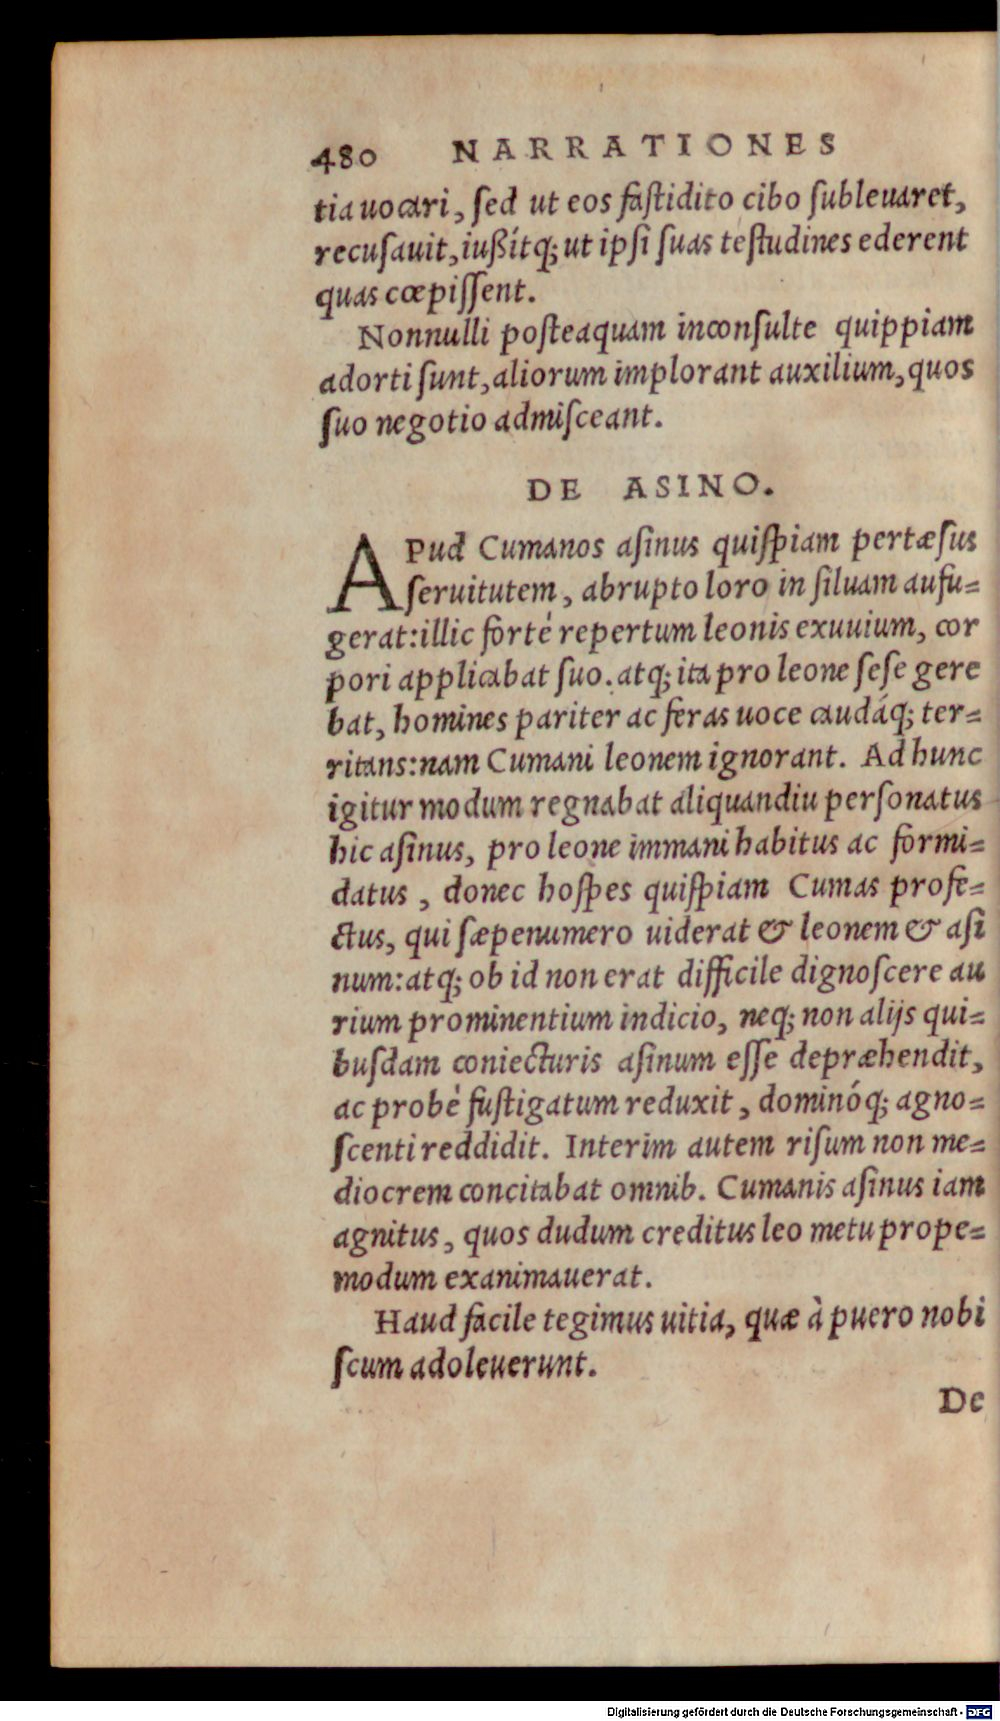 480 NARRATIONES
tia uocari, ſed ut eos faſtidito cibo ſubleuaret,
recuſauit, iußítq; ut ipſi ſuas teſtudines ederent
quas cœpiſſent.
Nonnulli poſteaquam inconſulte quippiam
adorti ſunt, aliorum implorant auxilium, quos
ſuo negotio admiſceant.
DE ASINO.
APud Cumanos aſinus quiſpiam pertæſus
ſeruitutem, abrupto loro in ſiluam aufu=
gerat: illic forté repertum leonis exuuium, cor
pori applicabat ſuo. atq; ita pro leone ſeſe gere
bat, homines pariter ac feras uoce caudáq; ter=
ritans: nam Cumani leonem ignorant. Ad hunc
igitur modum regnabat aliquandiu perſonatus
hic aſinus, pro leone immani habitus ac formi=
datus, donec hoſpes quiſpiam Cumas profe=
ctus, qui ſæpenumero uiderat & leonem & aſi
num: atq; ob id non erat difficile dignoſcere au
rium prominentium indicio, neq; non alijs qui=
buſdam coniecturis aſinum eſſe depræhendit,
ac probè fuſtigatum reduxit, dominóq; agno=
ſcenti reddidit. Interim autem riſum non me=
diocrem concitabat omnib. Cumanis aſinus iam
agnitus, quos dudum creditus leo metu prope=
modum exanimauerat.
Haud facile tegimus uitia, quæ à puero nobi
ſcum adoleuerunt.
De
Digitalisierung gefördert durch die Deutsche Forschungsgemeinschaft - DFG